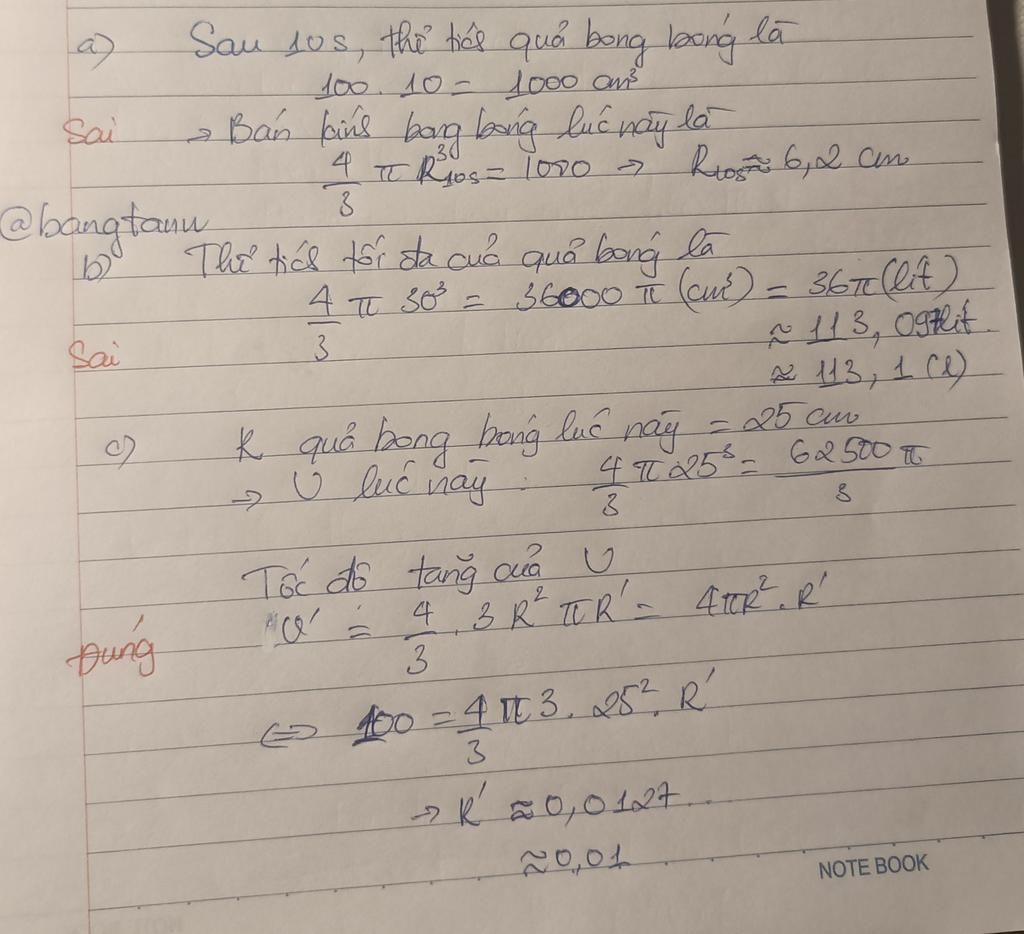 a) Sau 10s, thể tích quả bong bóng là
100 . 10 = 1000 cm³
Sai → Bán kính bong bóng lúc này là
4/3 π R³₁₀ₛ = 1000 → R₁₀ₛ ≈ 6,2 cm
@bangtanw
b) Thể tích tối đa của quả bóng là
4/3 π 30³ = 36000 π (cm³) = 36π (lít)
≈ 113,097 lít
Sai ≈ 113,1 (l)
c) R quả bong bóng lúc này = 25 cm
→ V lúc này : 4/3 π 25³ = 62500 π / 3
Tốc độ tăng của V
V' = 4/3 . 3 R² π R' = 4πR² . R'
Đúng
⇔ 100 = 4/3 π 3 . 25² . R'
→ R' ≈ 0,0127...
≈ 0,01
NOTE BOOK